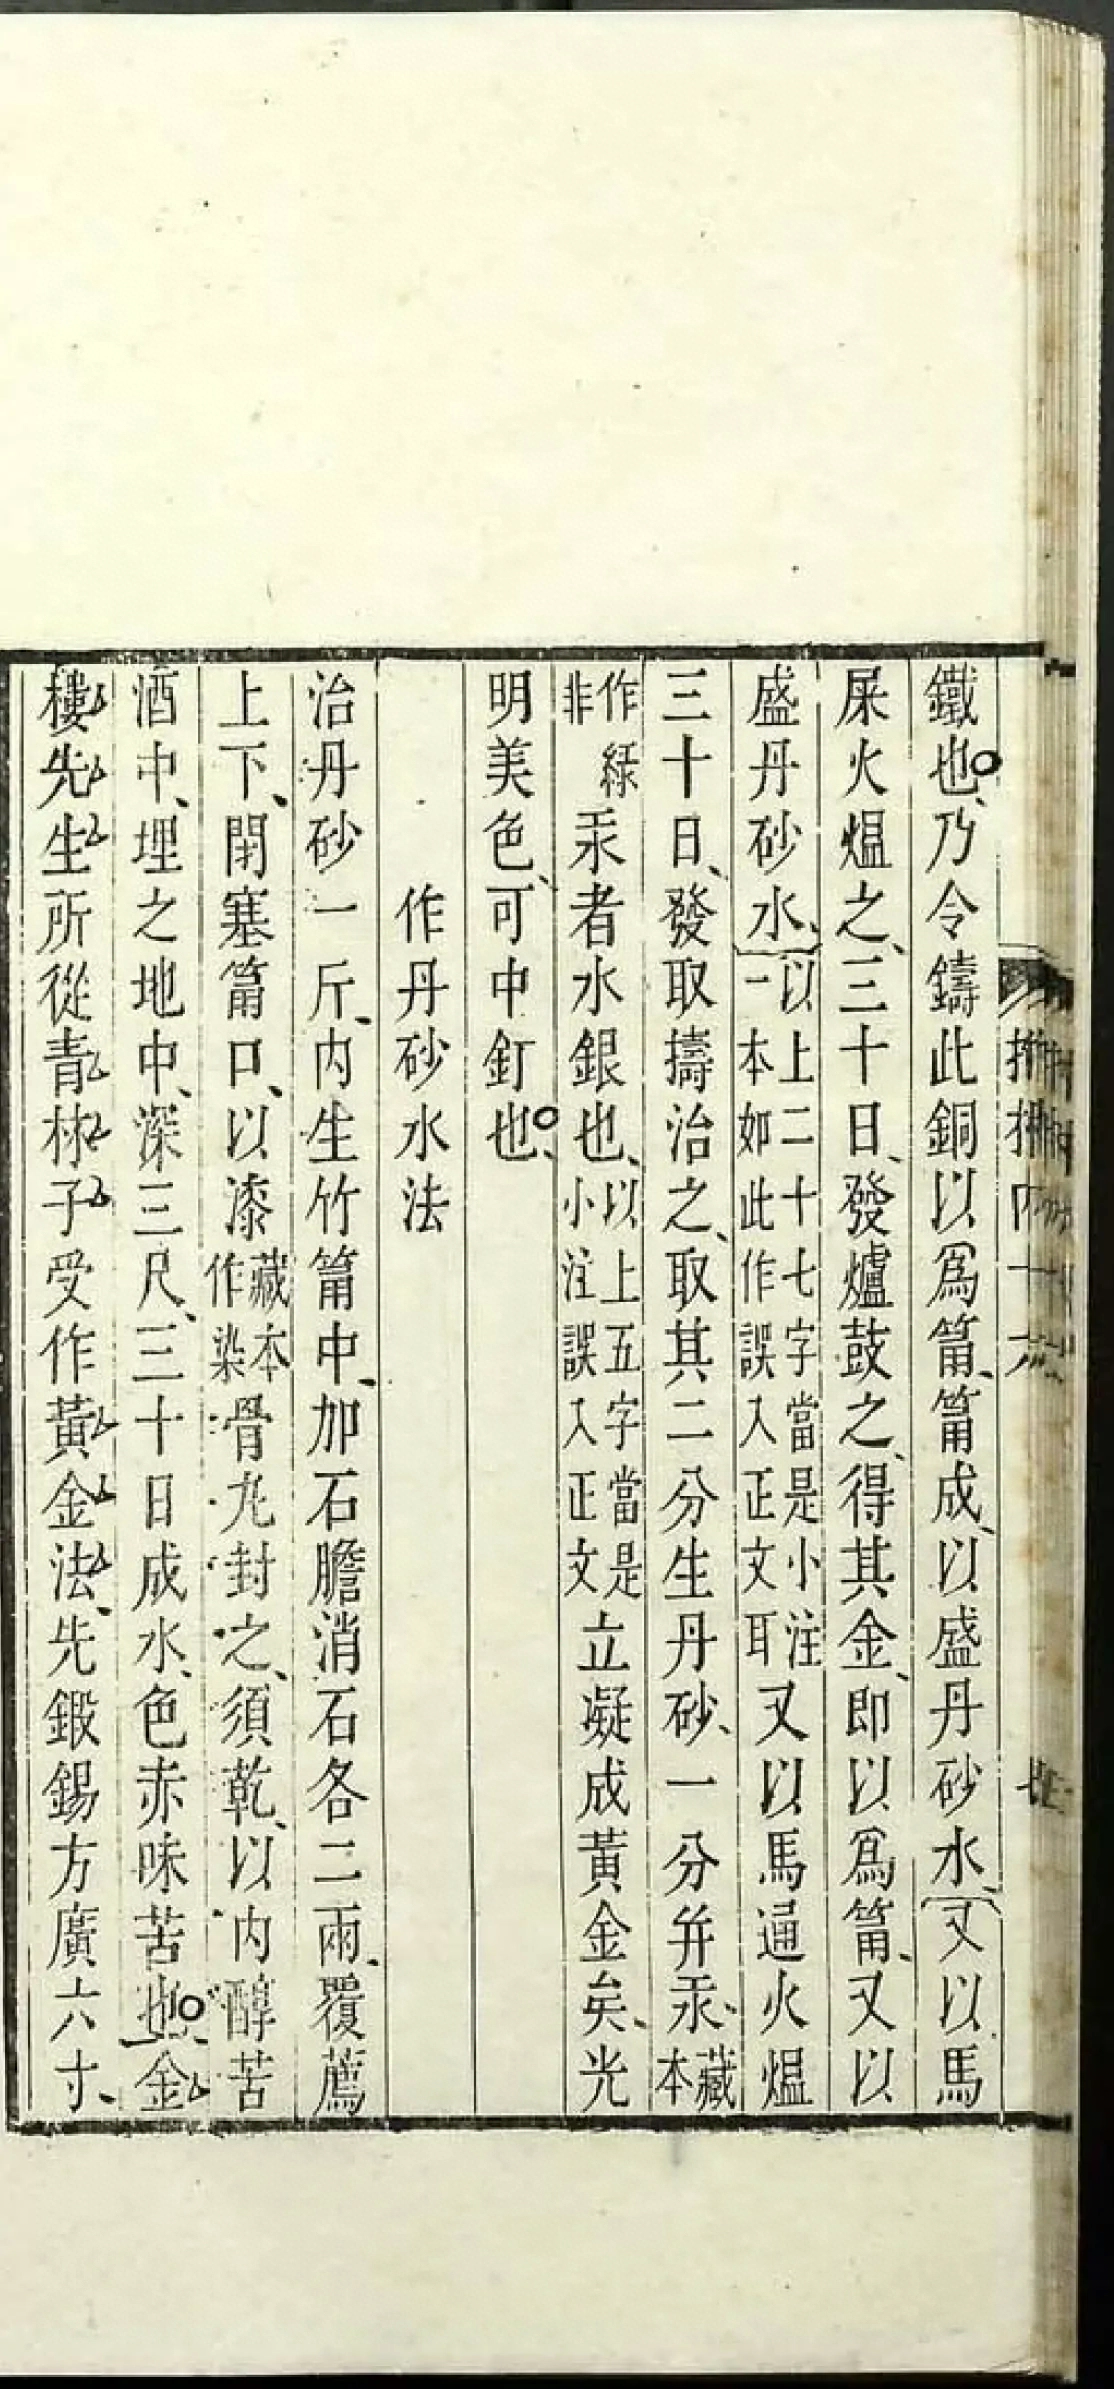 鐵也乃令鑄此銅以爲筩筩成以盛丹砂水又以馬
屎火熅之三十日發爐鼓之得其金即以爲筩又以
盛丹砂水以上二十七字當是小注一本如此作誤入正文耳又以馬通火熅
三十日發取擣治之取其二分生丹砂一分并汞藏本
作綠非汞者水銀也以上五字當是小注誤入正文立凝成黃金矣光
明美色可中釘也
作丹砂水法
治丹砂一斤內生竹筩中加石膽消石各二兩覆薦
上下閉塞筩口以漆藏本作染骨丸封之須乾以內醇苦
酒中埋之地中深三尺三十日成水色赤味苦也金
樓先生所從青林子受作黃金法先鍛錫方廣六寸